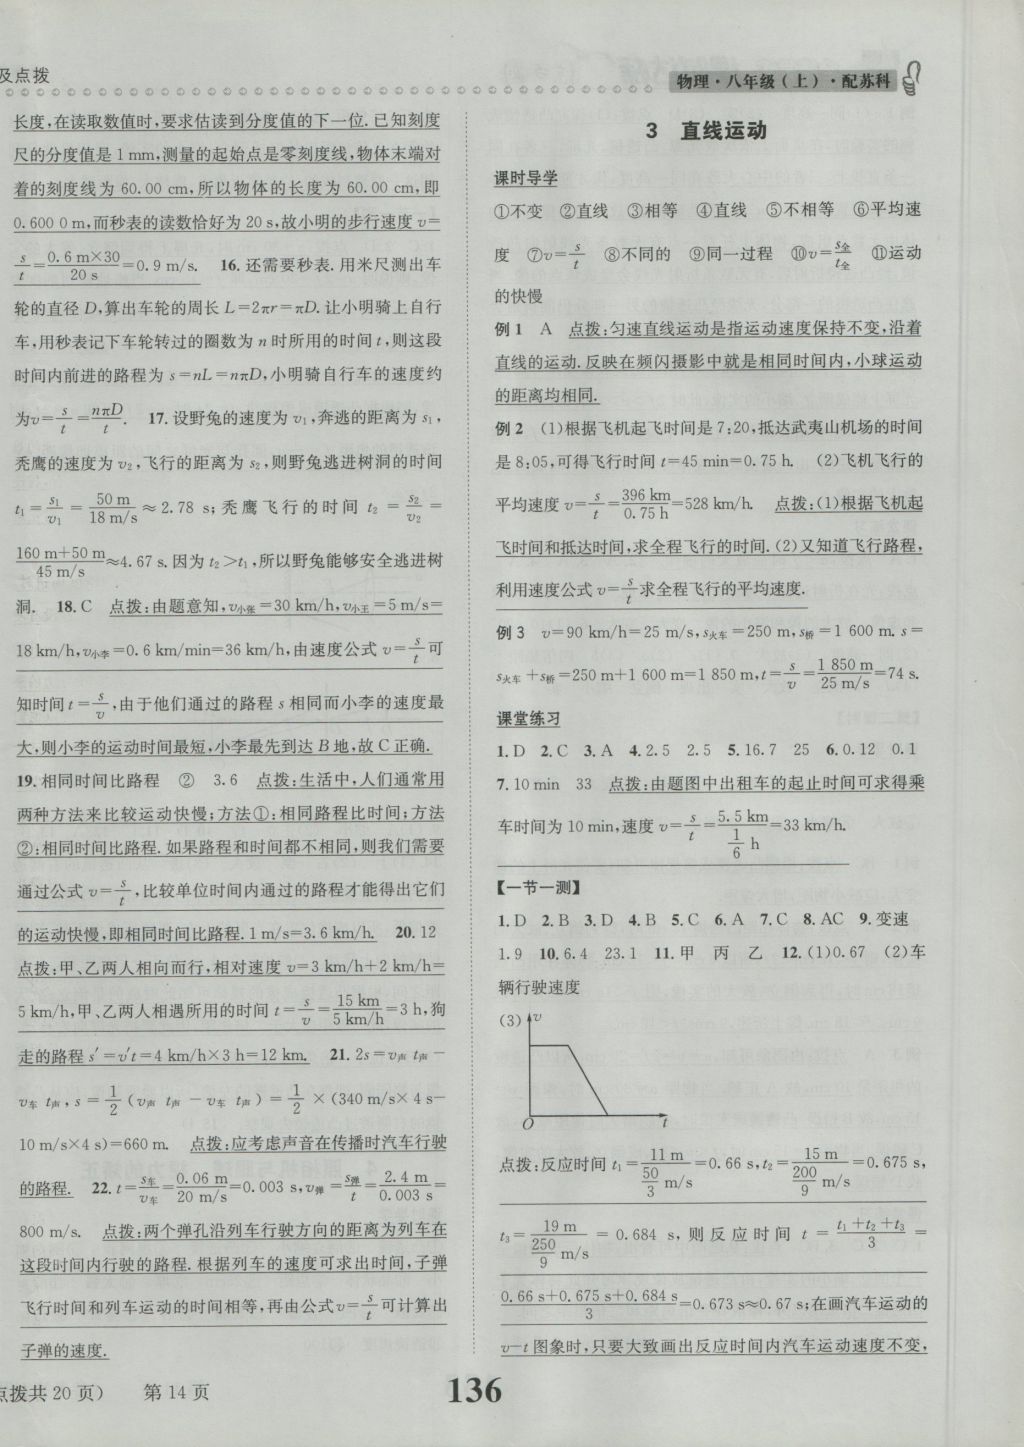 及点拨
物理·八年级(上)·配苏科
长度,在读取数值时,要求估读到分度值的下一位.已知刻度
尺的分度值是1 mm,测量的起始点是零刻度线,物体末端对
着的刻度线为60.00 cm,所以物体的长度为60.00 cm,即
0.600 0 m,而秒表的读数恰好为20 s,故小明的步行速度v=
s/t=0.6 m×30/20 s=0.9 m/s. 16.还需要秒表.用米尺测出车
轮的直径D,算出车轮的周长L=2πr=πD.让小明骑上自行
车,用秒表记下车轮转过的圈数为n时所用的时间t,则这段
时间内前进的路程为s=nL=nπD,小明骑自行车的速度约
为v=s/t=nπD/t. 17.设野兔的速度为v₁,奔逃的距离为s₁,
秃鹰的速度为v₂,飞行的距离为s₂,则野兔逃进树洞的时间
t₁=s₁/v₁=50 m/18 m/s≈2.78 s;秃鹰飞行的时间t₂=s₂/v₂=
160 m+50 m/45 m/s≈4.67 s.因为t₂>t₁,所以野兔能够安全逃进树
洞. 18.C 点拨:由题意知,v小张=30 km/h,v小王=5 m/s=
18 km/h,v小李=0.6 km/min=36 km/h,由速度公式v=s/t可
知时间t=s/v,由于他们通过的路程s相同而小李的速度最
大,则小李的运动时间最短,小李最先到达B地,故C正确.
19.相同时间比路程 ② 3.6 点拨:生活中,人们通常用
两种方法来比较运动快慢;方法①:相同路程比时间;方法
②:相同时间比路程.如果路程和时间都不相同,则我们需要
通过公式v=s/t,比较单位时间内通过的路程才能得出它们
的运动快慢,即相同时间比路程.1 m/s=3.6 km/h. 20.12
点拨:甲、乙两人相向而行,相对速度v=3 km/h+2 km/h=
5 km/h,甲、乙两人相遇所用的时间t=s/v=15 km/5 km/h=3 h,狗
走的路程s′=v′t=4 km/h×3 h=12 km. 21.2s=v声t声-
v车t声,s=1/2(v声t声-v车t声)=1/2×(340 m/s×4 s-
10 m/s×4 s)=660 m. 点拨:应考虑声音在传播时汽车行驶
的路程. 22.t=s车/v车=0.06 m/20 m/s=0.003 s,v弹=s弹/t=2.4 m/0.003 s=
800 m/s. 点拨:两个弹孔沿列车行驶方向的距离为列车在
这段时间内行驶的路程.根据列车的速度可求出时间,子弹
飞行时间和列车运动的时间相等,再由公式v=s/t可计算出
子弹的速度.
3 直线运动
课时导学
①不变 ②直线 ③相等 ④直线 ⑤不相等 ⑥平均速
度 ⑦v=s/t ⑧不同的 ⑨同一过程 ⑩v=s全/t全 ⑪运动
的快慢
例1 A 点拨:匀速直线运动是指运动速度保持不变,沿着
直线的运动.反映在频闪摄影中就是相同时间内,小球运动
的距离均相同.
例2 (1)根据飞机起飞时间是7:20,抵达武夷山机场的时间
是8:05,可得飞行时间t=45 min=0.75 h. (2)飞机飞行的
平均速度v=s/t=396 km/0.75 h=528 km/h. 点拨:(1)根据飞机起
飞时间和抵达时间,求全程飞行的时间.(2)又知道飞行路程,
利用速度公式v=s/t求全程飞行的平均速度.
例3 v=90 km/h=25 m/s,s火车=250 m,s桥=1 600 m.s=
s火车+s桥=250 m+1 600 m=1 850 m,t=s/v=1 850 m/25 m/s=74 s.
课堂练习
1.D 2.C 3.A 4.2.5 2.5 5.16.7 25 6.0.12 0.1
7.10 min 33 点拨:由题图中出租车的起止时间可求得乘
车时间为10 min,速度v=s/t=5.5 km/(1/6 h)=33 km/h.
【一节一测】
1.D 2.B 3.D 4.B 5.C 6.A 7.C 8.AC 9.变速
1.9 10.6.4 23.1 11.甲 丙 乙 12.(1)0.67 (2)车
辆行驶速度
(3) v
O t
点拨:反应时间t₁=11 m/(50/3 m/s)=0.66 s,t₂=15 m/(200/9 m/s)=0.675 s,
t₃=19 m/(250/9 m/s)=0.684 s,则反应时间t=t₁+t₂+t₃/3=
0.66 s+0.675 s+0.684 s/3=0.673 s≈0.67 s;在画汽车运动的
v-t图象时,只要大致画出反应时间内汽车运动速度不变,
点拨共20页) 第14页
136